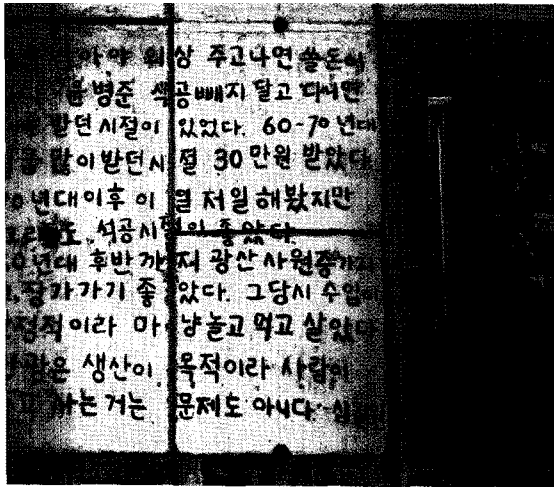 상 주고나면 쓸돈이
병준 석공빼지 달고 다니면
받던 시절이 있었다. 60-70년대
많이 받던 시절 30만원 받았다
년대 이후 이 일 저 일 해봤지만
석공시절이 좋았다.
년대 후반까지 광산 사원증
장가가기 좋았다. 그당시 수입이
이라 마냥 놀고 먹고 살았다
은 생산이 목적이라 사람이
사는거는 문제도 아니다.